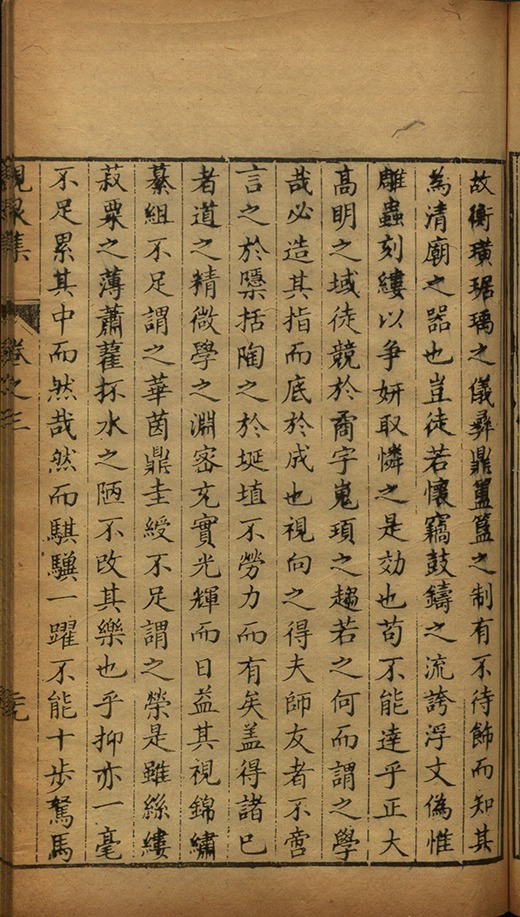 故衡璜琚瑀之儀彝鼎簠簋之制有不待飾而知其
為清廟之器也豈徒若懷竊鼓鑄之流誇浮文偽惟
雕蟲刻縷以争妍取憐之是効也苟不能達乎正大
高明之域徒競於喬宇嵬瑣之趨若之何而謂之學
哉必造其指而底於成也視向之得夫師友者不啻
言之於檃括陶之於埏埴不勞力而有矣盖得諸巳
者道之精微學之淵密充實光輝而日益其視錦繡
纂組不足謂之華茵鼎圭綬不足謂之榮是雖絲縷
菽粟之薄蕭藋抔水之陋不改其樂也乎抑亦一毫
不足累其中而然哉然而騏驥一躍不能十步駑馬
峴泉集 卷之三